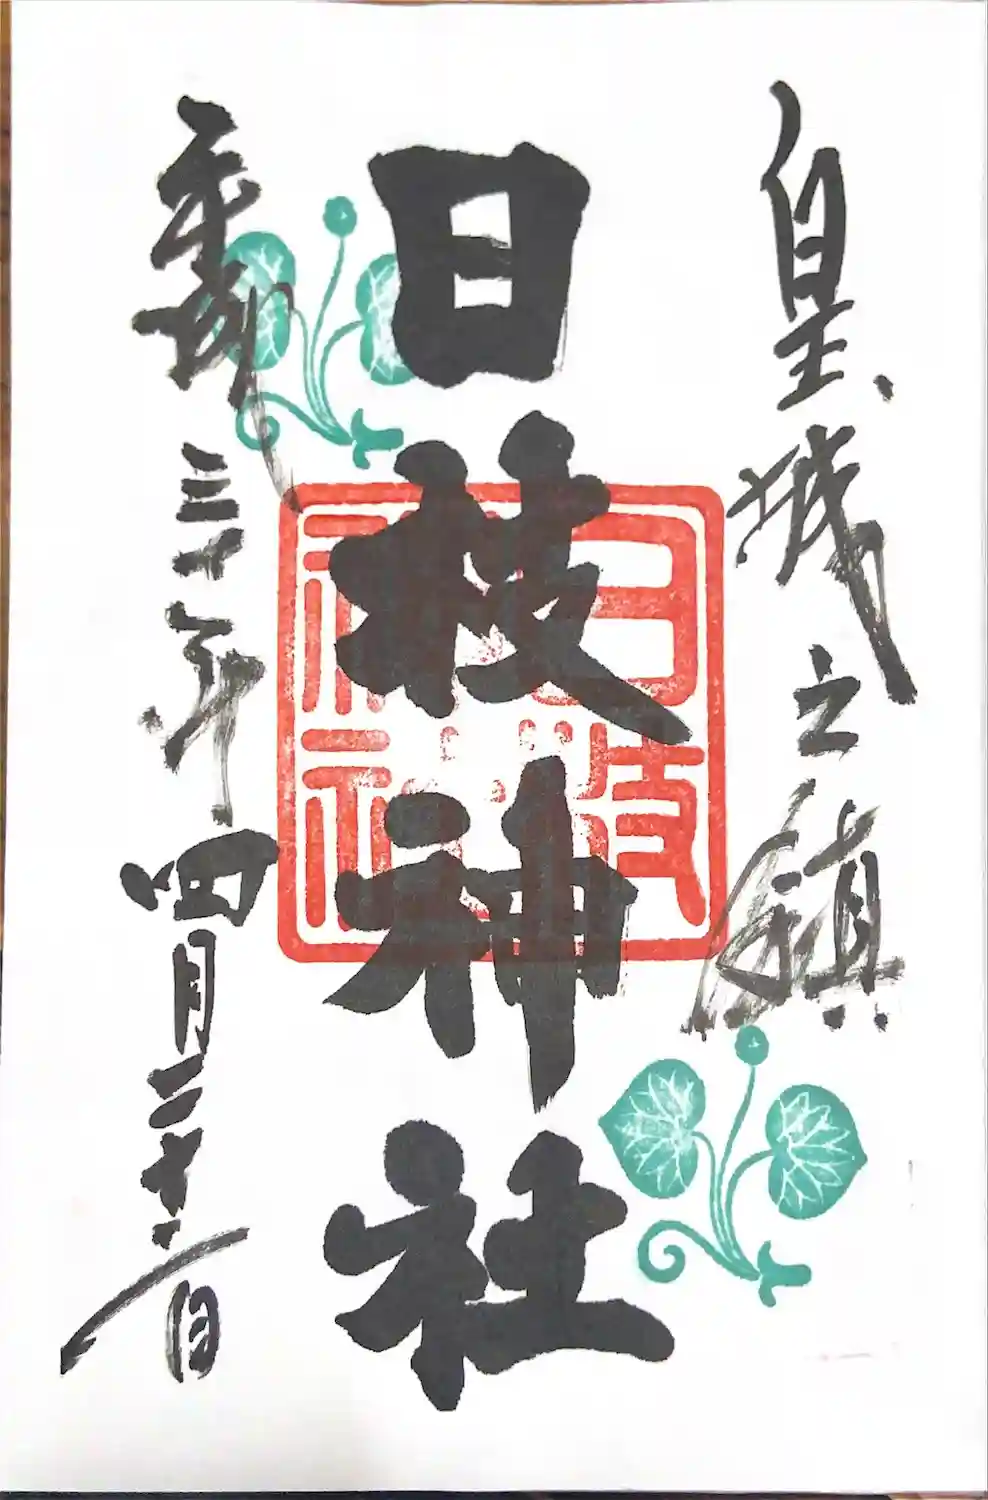 皇城之鎮
日枝神社
平成三十年四月二十二日
日枝
神社